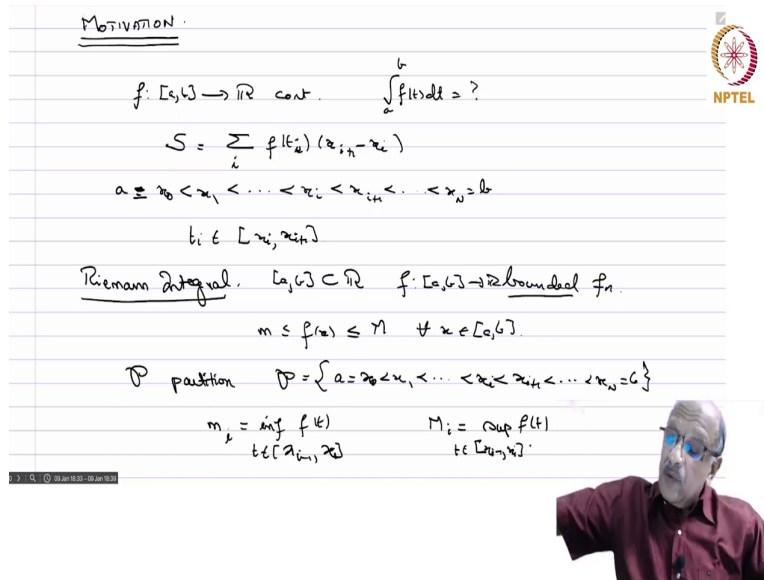 MOTIVATION.
f: [a,b] → ℝ cont. ∫_a^b f(t)dt = ?
S = ∑_i f(t_i) (x_{i+1} - x_i)
a = x_0 < x_1 < ... < x_i < x_{i+1} < ... < x_N = b
t_i ∈ [x_i, x_{i+1}]
Riemann Integral. [a,b] ⊂ ℝ f: [a,b] → ℝ bounded fn.
m ≤ f(x) ≤ M ∀ x ∈ [a,b].
P partition P = { a = x_0 < x_1 < ... < x_i < x_{i+1} < ... < x_N = b }
m_i = inf f(t) M_i = sup f(t)
t∈[x_{i-1}, x_i] t∈[x_{i-1}, x_i].
NPTEL
09 Jan 18:33 - 09 Jan 18:39